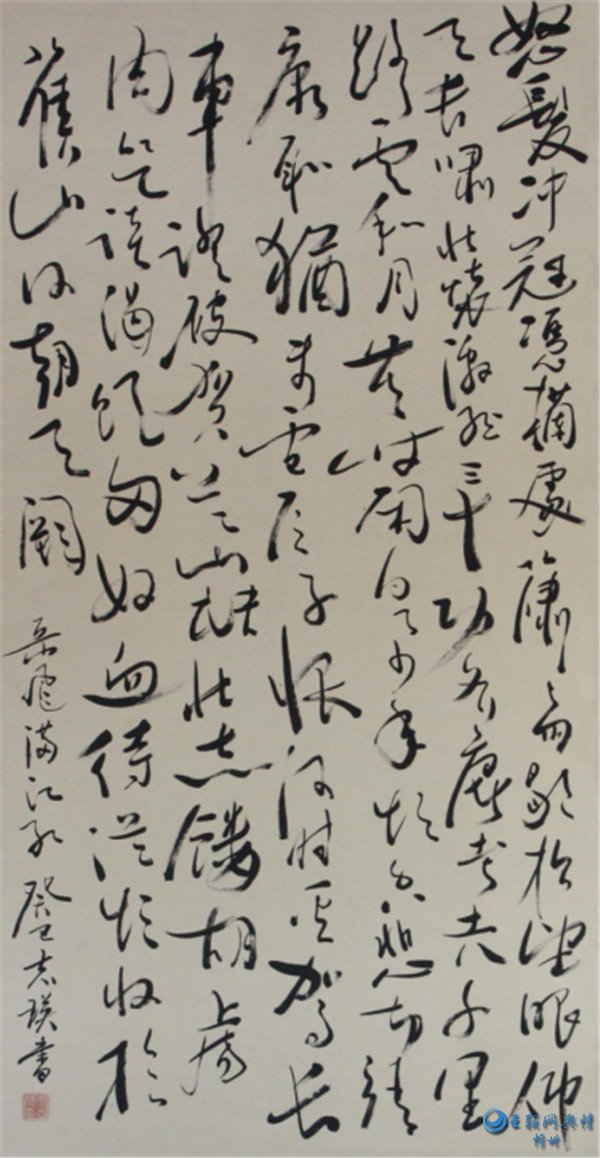 怒髮冲冠憑欄處瀟々雨歇抬望眼仰
天長嘯壯懷激烈三十功名塵與土八千里
路雲和月莫等閑白了少年頭空悲切靖
康恥猶未雪臣子恨何時滅駕長
車踏破賀蘭山缺壯志饑胡虜
肉笑談渴飲匈奴血待從頭收拾
舊山河朝天闕
岳飛滿江紅 癸巳志瑛書
网舆情
忻州